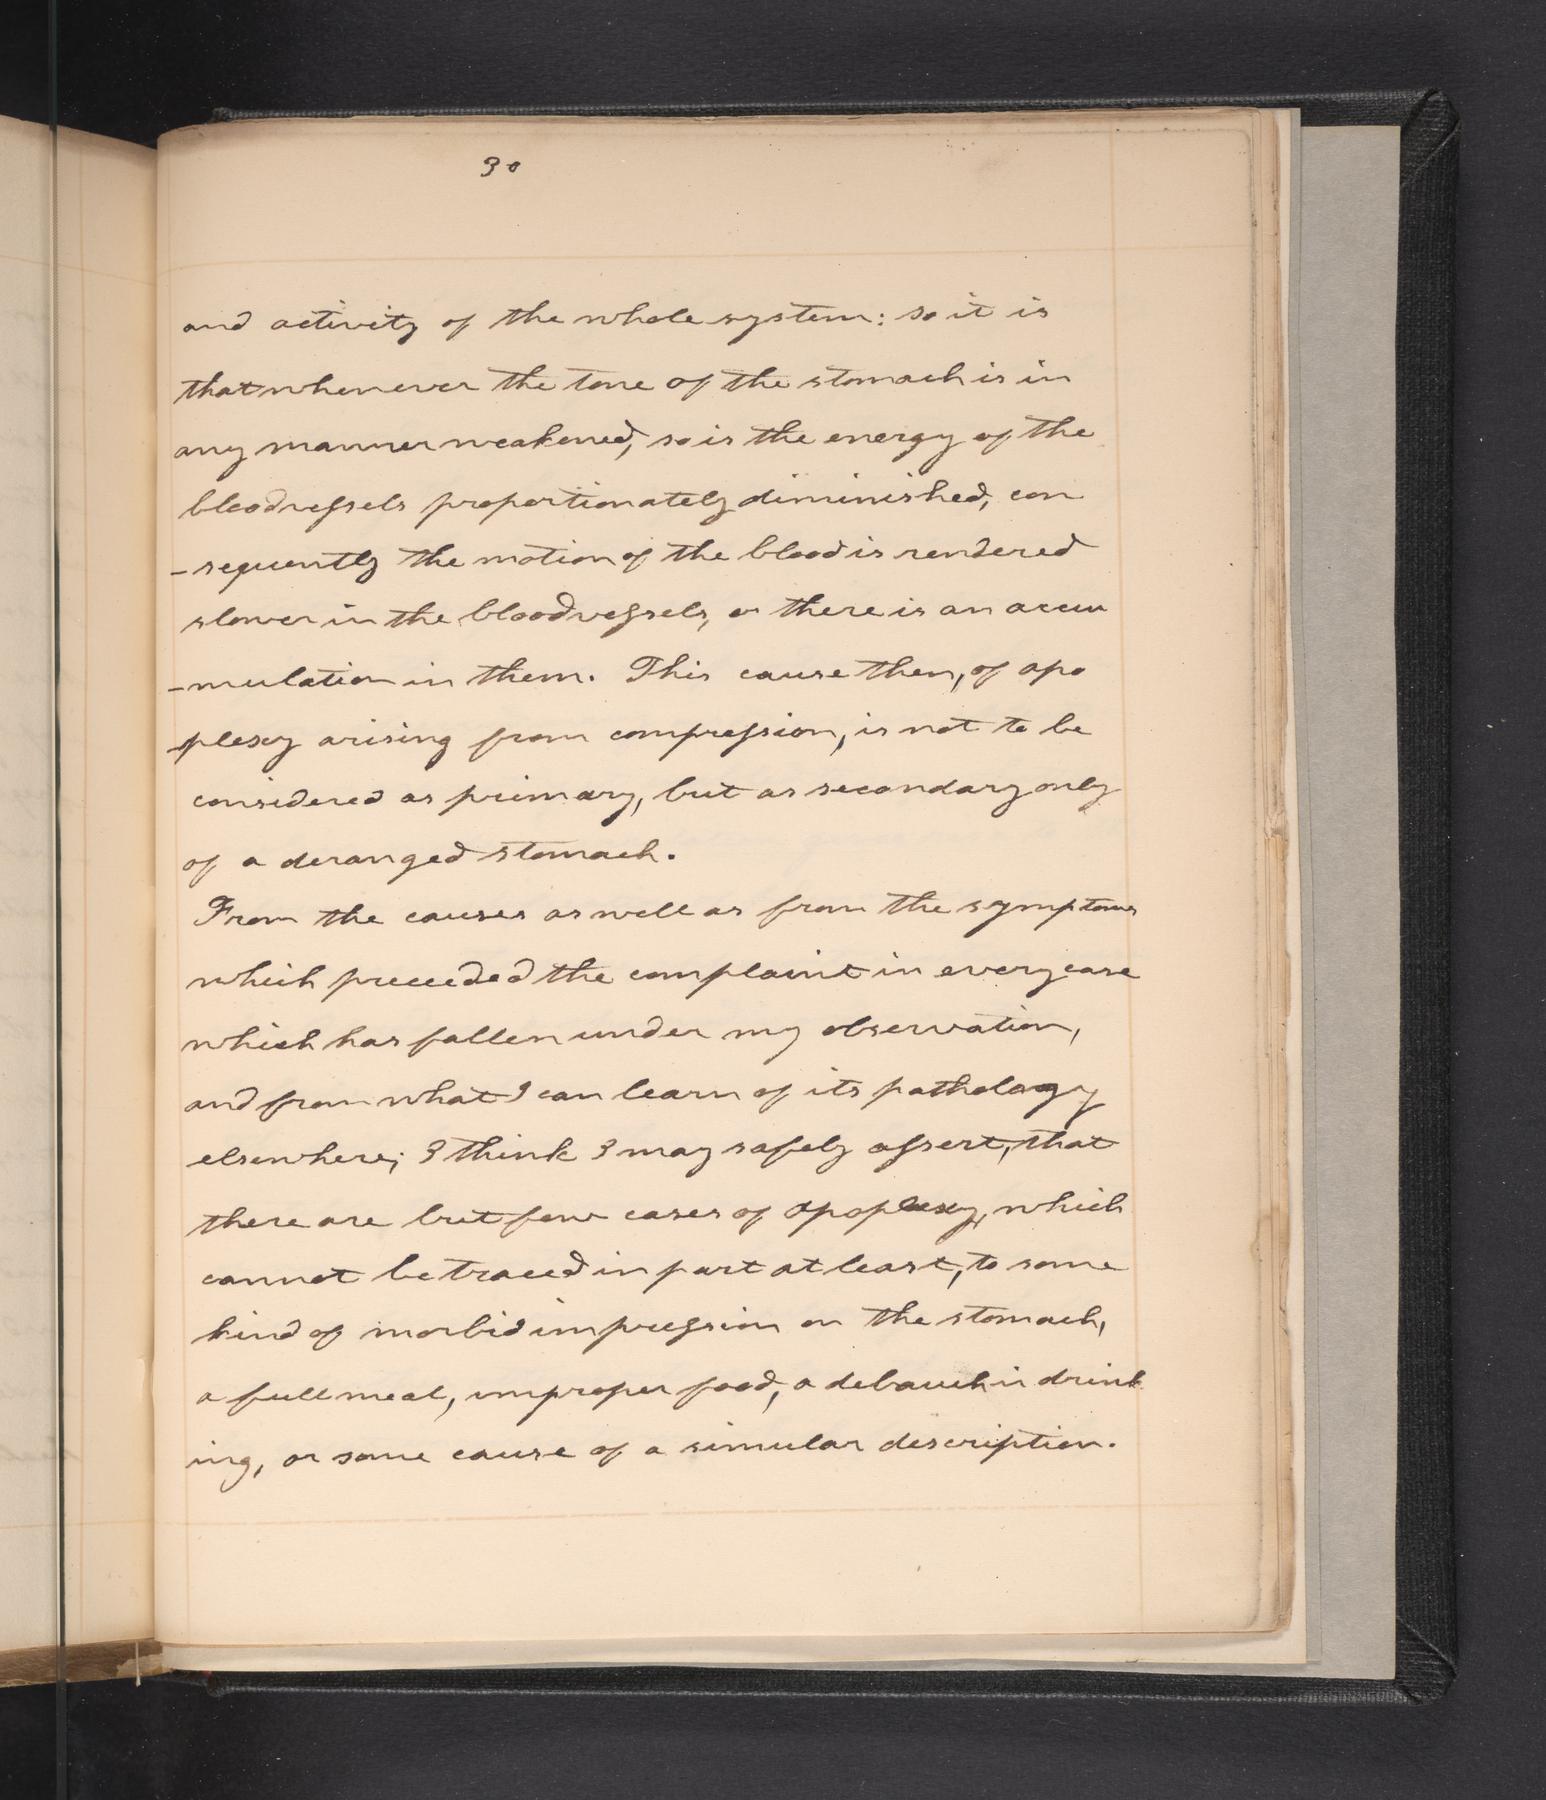 30
and activity of the whole system: so it is
that whenever the tone of the stomach is in
any manner weakened, so is the energy of the
bloodvessels proportionately diminished, con
-sequently the motion of the blood is rendered
slower in the bloodvessels, or there is an accu
-mulation in them. This cause then, of apo
plexy arising from compression, is not to be
considered as primary, but as secondary only
of a deranged stomach.
From the causes as well as from the symptoms
which preceeded the complaint in every case
which has fallen under my observation,
and from what I can learn of its pathology
elsewhere; I think I may safely assert, that
there are but few cases of apoplexy, which
cannot be traced in part at least, to some
kind of morbid impression on the stomach,
a full meal, improper food, a debauch in drink
ing, or some cause of a simular description.